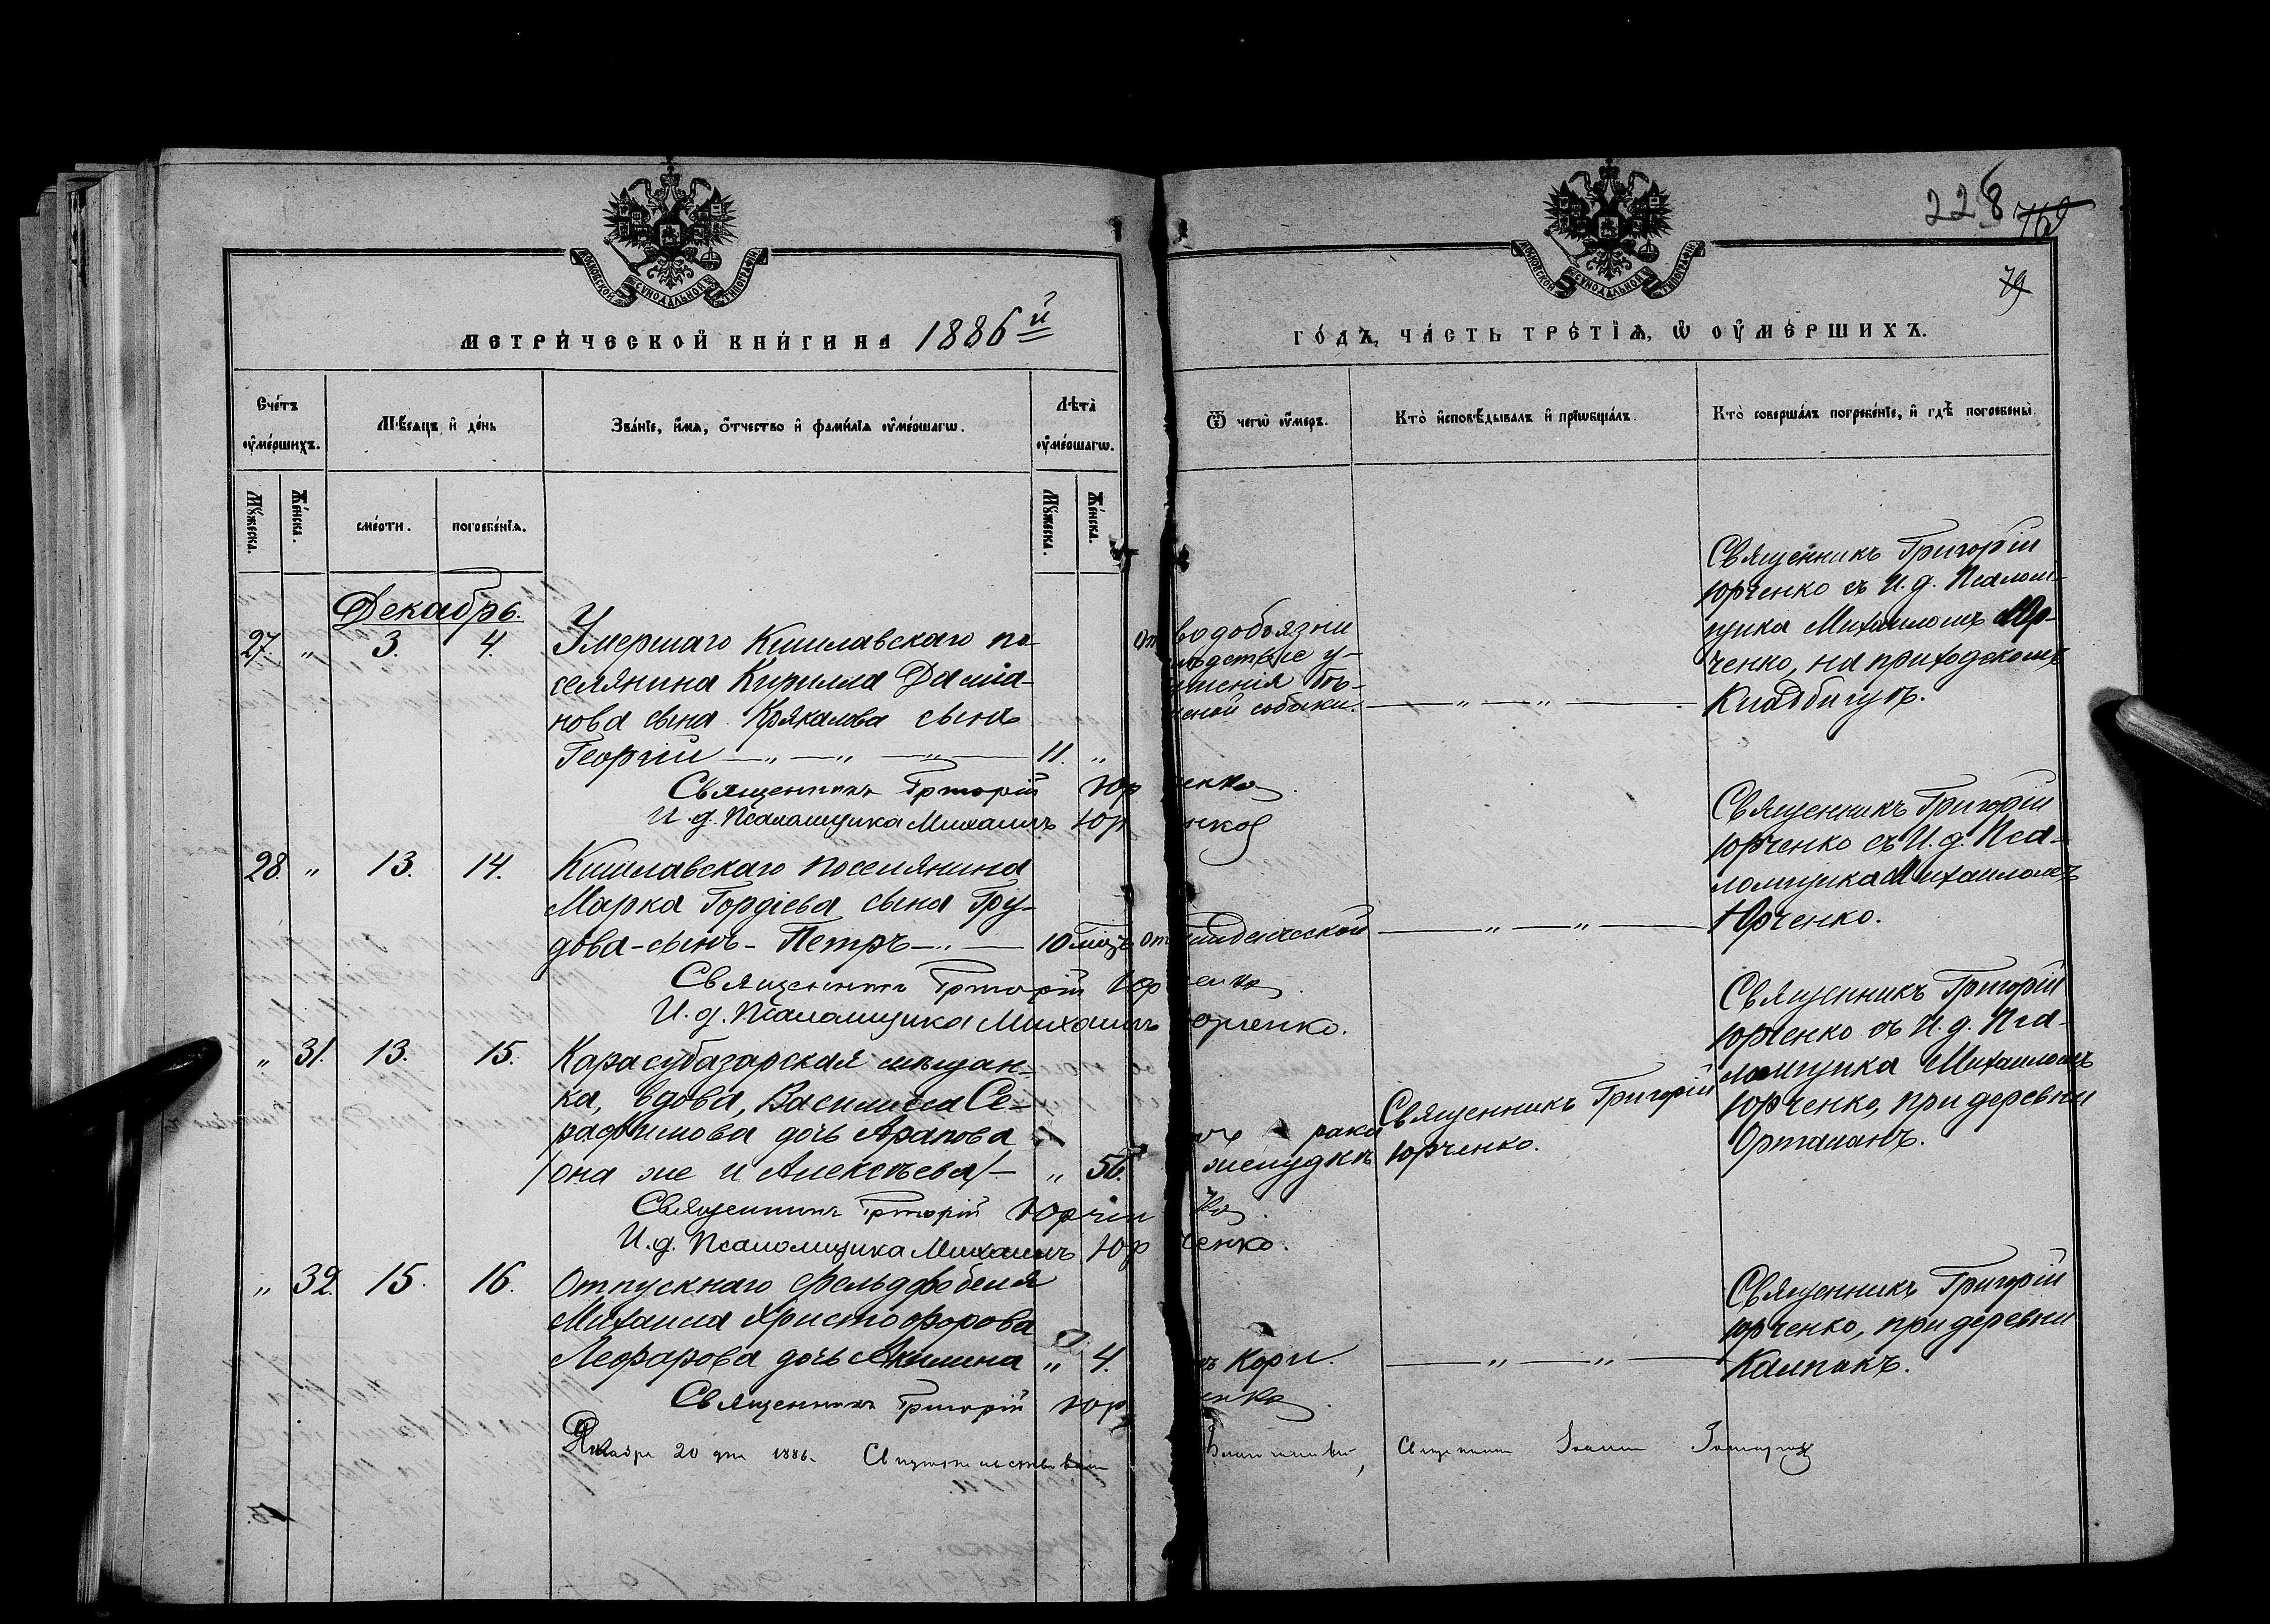 228 769
79
МОСКОВСКОЙ СѴНОДАЛЬНОЙ ТИПОГРАФІИ
МОСКОВСКОЙ СѴНОДАЛЬНОЙ ТИПОГРАФІИ
МЕТРИ́ЧЕСКОЙ КНИ́ГИ НА 1886й
ГО́ДЪ, ЧА́СТЬ ТРЕ́ТІѦ, Ѡ ОУ҆МЕ́РШИХЪ.
Сче́тъ оу҆ме́ршихъ.
Мѣ́сяцъ и҆ де́нь
Зва́ніе, и҆́мѧ, ѻ҆́тчество и҆ фами́лїѧ оу҆ме́ршагѡ.
Лѣта̀ оу҆ме́ршагѡ.
Ѿ чегѡ̀ оу҆́меръ.
Кто̀ и҆сповѣ́дывалъ и҆ прїѡбща́лъ.
Кто̀ соверша́лъ погребе́нїе, и҆ гдѣ̀ погребены̀.
Мꙋ́жеска.
Же́нска.
сме́рти.
погребе́нїѧ.
Мꙋ́жеска.
Же́нска.
Декабрь.
27. " 3. 4. Умершаго Кишлавскаго по-
селянина Кирилла Даміа-
нова сына Крякалова сынъ
Георгій —„—„—„— 11. „
От водобоязни
слѣдствіе у-
шенія бѣ-
шеной собаки. —„—„—
Священникъ Григорій
Юрченко съ И. д. Псалом-
щика Михаиломъ Юр-
ченко, на приходскомъ
Кладбищѣ.
Священникъ Григорій Юрченко
И. д. Псаломщика Михаилъ Юрченко
28. " 13. 14. Кишлавскаго поселянина
Марка Гордіева сына Гру-
дова-сынъ-Петръ—„— 10 мѣц. От младенческой —„—„—
Священникъ Григорій
Юрченко съ И. д. Пса-
ломщика Михаиломъ
Юрченко.
Священникъ Григорій Юрченко
И. д. Псаломщика Михаилъ Юрченко.
" 31. 13. 15. Карасубазарская мѣщан-
ка, вдова, Василисса Се-
рафимова дочь Арапова
/она же и Алексѣева/— „ 56.
рака
желудкѣ
Священникъ Григорій
Юрченко.
Священникъ Григорій
Юрченко съ И. д. Пса-
ломщика Михаиломъ
Юрченко, при деревни
Орталанъ.
Священникъ Григорій Юрченко
И. д. Псаломщика Михаилъ Юрченко.
" 32. 15. 16. Отпускнаго фельдфебеля
Михаила Христофорова
Лефарова дочь Акилина „ 4.
Кори. —„—„—
Священникъ Григорій
Юрченко, при деревни
Калпакъ.
Священникъ Григорій Юрченко
Декабря 20 дня 1886. Свидѣтельствовалъ Благочинный, Священникъ Іоаннъ